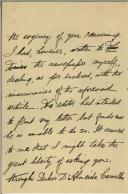 the cogency of your reasoning.
I had, however, written to the
Times the newspaper myself,
dealing, as you suggest, with the
inaccuracies of the aforesaid
article. The editor had intended
to print my letter, but finds now
he is unable to do so. It occurs
to me that I might take the
great liberty of asking you,
through Senhor D'Almeida Carvalho